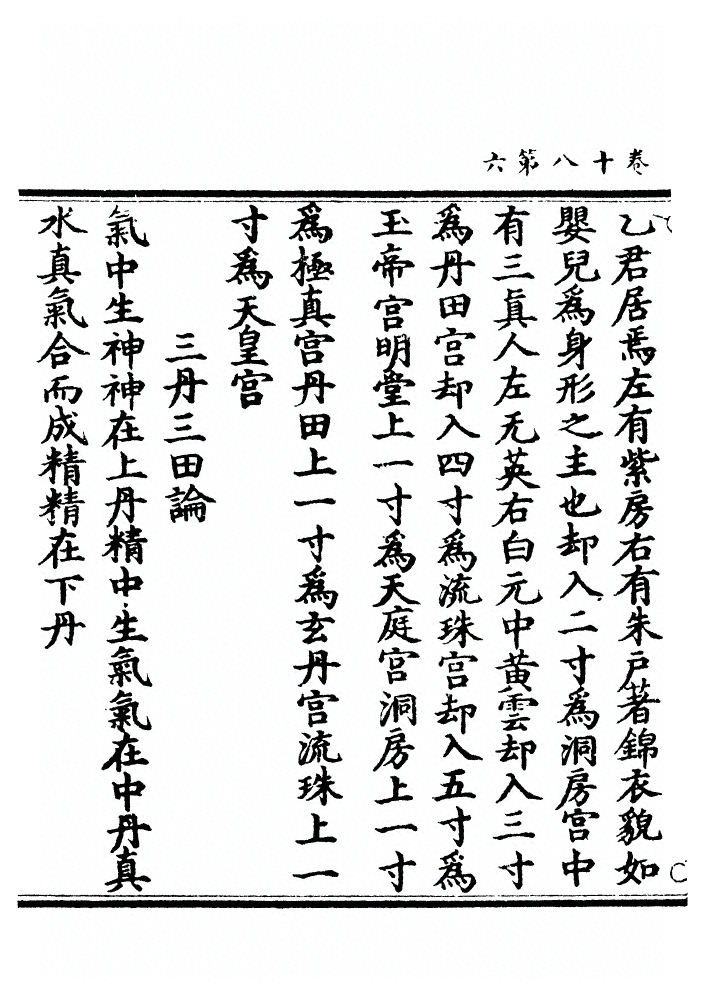 卷十八第六
乙君居焉左有紫房右有朱戸著錦衣貌如
嬰兒為身形之主也却入二寸為洞房宮中
有三眞人左无英右白元中黃雲却入三寸
為丹田宮却入四寸為流珠宮却入五寸為
玉帝宮明堂上一寸為天庭宮洞房上一寸
為極真宮丹田上一寸為玄丹宮流珠上一
寸為天皇宮
三丹三田論
氣中生神神在上丹精中生氣氣在中丹真
水真氣合而成精精在下丹